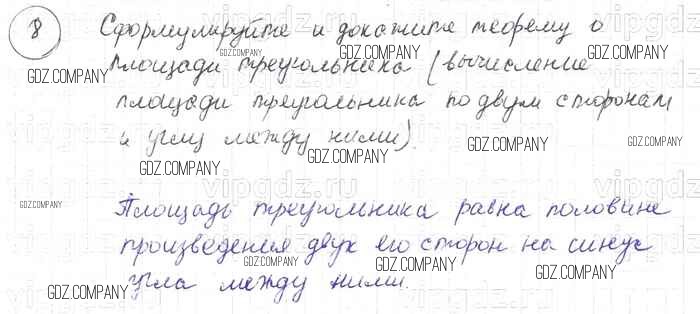 8 Сформулируйте и докажите теорему о
площади треугольника (вычисление
площади треугольника по двум сторонам
и углу между ними).
Площадь треугольника равна половине
произведения двух его сторон на синус
угла между ними.
GDZ.COMPANY
GDZ.COMPANY
GDZ.COMPANY
GDZ.COMPANY
GDZ.COMPANY
GDZ.COMPANY
GDZ.COMPANY
GDZ.COMPANY
GDZ.COMPANY
GDZ.COMPANY
GDZ.COMPANY
GDZ.COMPANY
GDZ.COMPANY
GDZ.COMPANY
vipgdz.ru